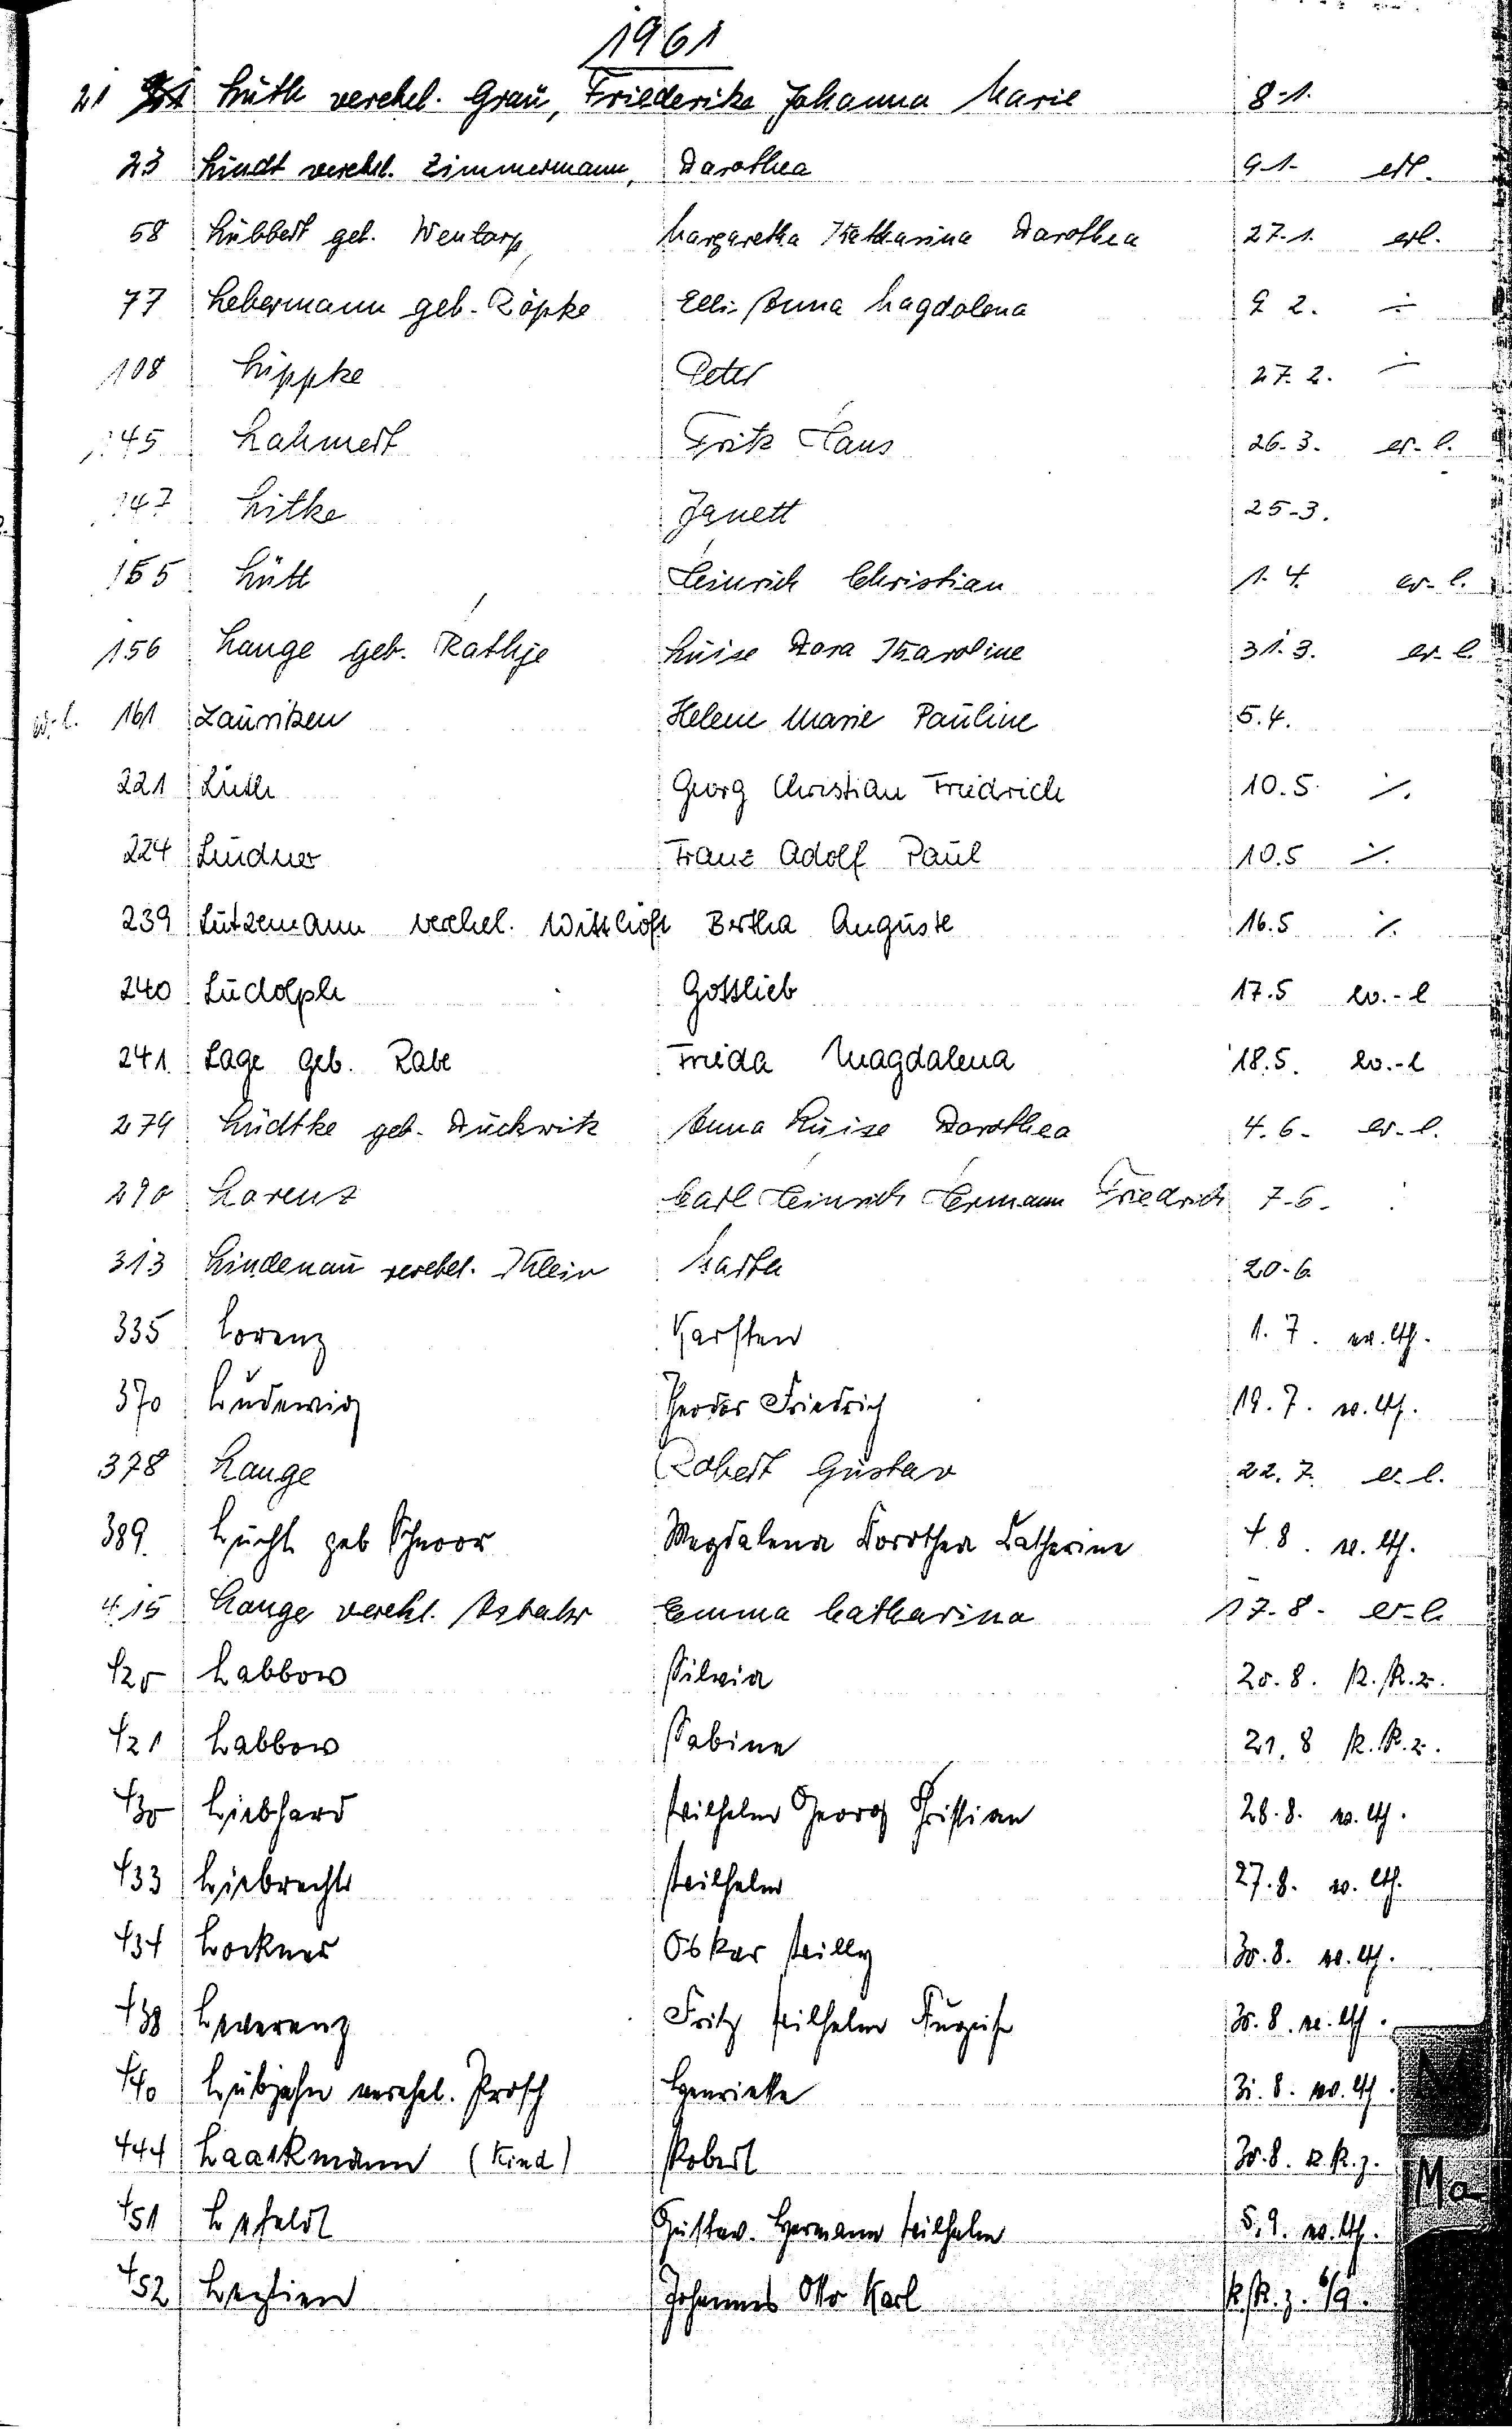 1961
21 Lüth verehel. Graü, Friederike Johanna Marie 8-1.
23 Lindt verehel. Zimmermann, Dorothea 9-1- erl.
58 Lübbert geb. Wentorp, Margaretha Katharina Dorothea 27.1. erl.
77 Lebermann geb. Röpke Elli Anna Magdalena 9 2. ÷
108 Lippke Peter 27. 2. ÷
145 Lahmert Fritz Hans 26.3. ev-l.
147 Litke Janett 25-3.
155 Lütt Heinrich Christian 1. 4. ev-l.
156 Lange geb. Rathje Luise Dora Karoline 31.3. ev-l.
ev-l. 161 Lauritzen Helene Marie Pauline 5.4.
221 Lüth Georg Christian Friedrich 10.5. ./.
224 Lindner Franz Adolf Paul 10.5 ./.
239 Lützemann verehel. Witthöft Bertha Auguste 16.5 ./.
240 Ludolph Gottlieb 17.5 ev.-l
241. Lage geb. Rabe Frieda Magdalena 18.5. ev.-l
279 Lüdtke geb. Duckwitz Anna Luise Dorothea 4.6. ev-l.
290 Lorenz Carl Heinrich Hermann Friedrich 7-6.
313 Lindenau verehel. Klein Martha 20-6.
335 Lorenz Karsten 1. 7. ev. lth.
370 Ludewig Theodor Friedrich 19.7. ev. lth.
378 Lange Robert Gustav 22.7. ev. l.
389. Lucht geb Schnoor Magdalena Dorothea Catherine 4.8. ev. lth.
415 Lange verehl. Asbahr Emma Catharina 17-8- ev-l.
420 Labbow Silvia 20.8. k.K.z.
421 Labbow Sabine 21.8 k.K.z.
430 Liebhard Wilhelm Georg Christian 28.8. ev. lth.
433 Liebrecht Wilhelm 27.8. ev. lth.
434 Lockner Oskar Willy 30.8. ev. lth.
438 Leverenz Fritz Wilhelm August 30.8. ev. lth.
440 Lübjahn verehel. Prosch Henriette 31.8. ev. lth.
444 Laackmann (Kind) Robert 30.8. k.K.z.
451 Lefeldt Gustav Hermann Wilhelm 5.9. ev. lth.
452 Lezlien Johannes Otto Karl k.K.z. 6/9.
M
Ma